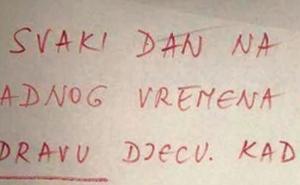 SVAKI DAN NA
ADNOG VREMENA
DRAVU DJECU. KAD